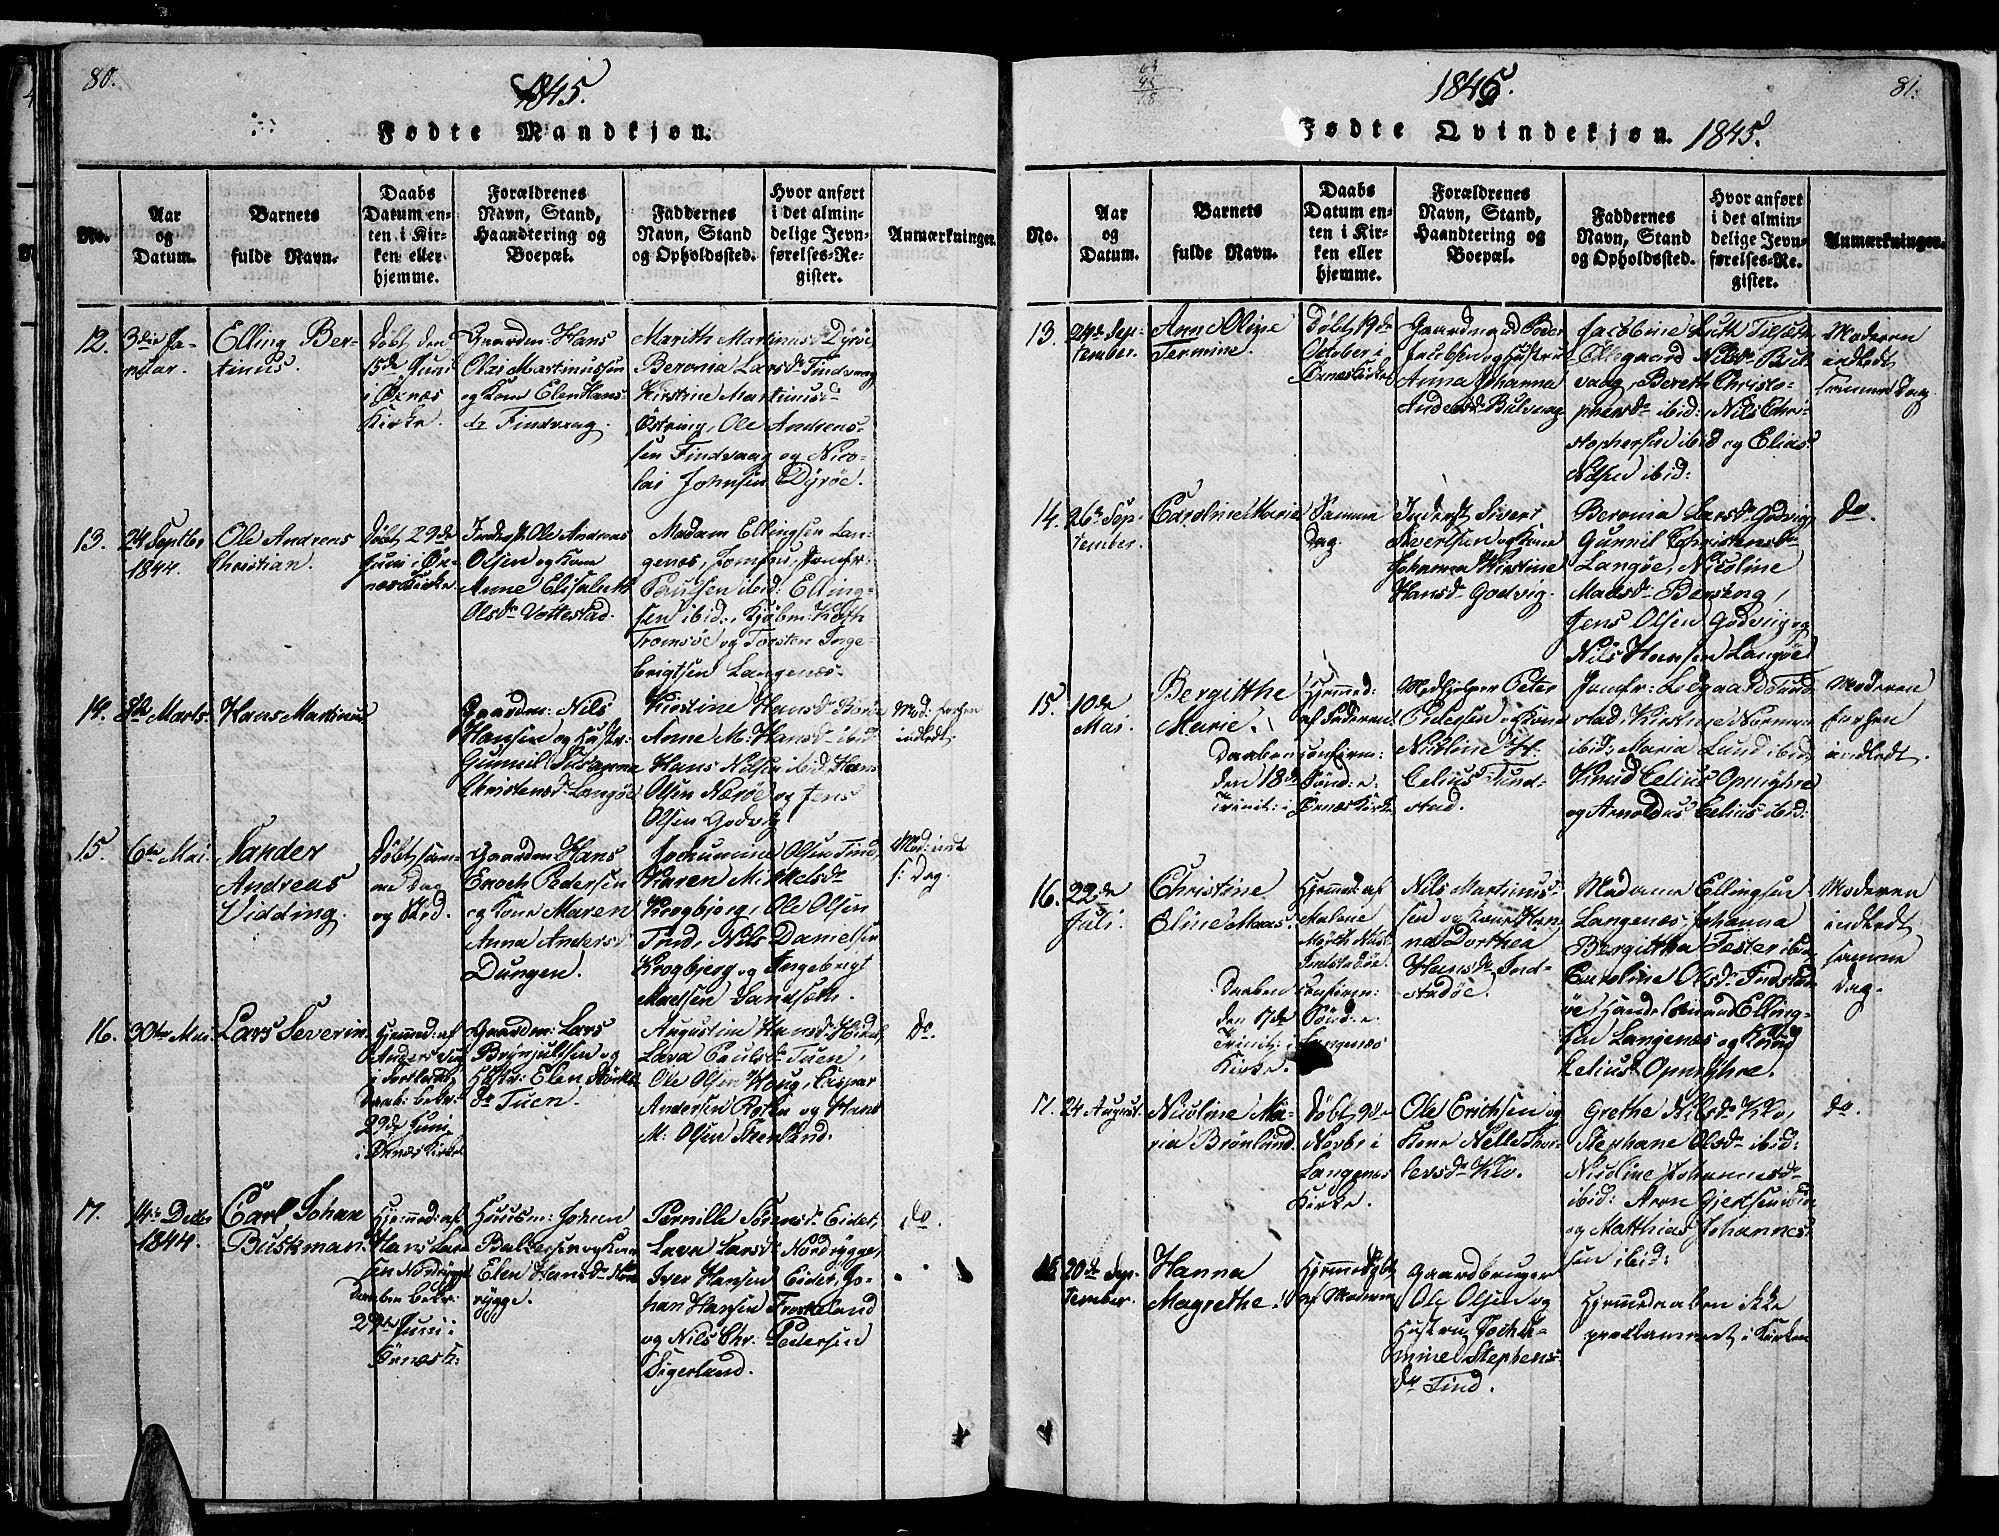 80.
1845.
Fødte Mandkjøn.
No.
Aar
og
Datum.
Barnets
fulde Navn.
Daabs
Datum en-
ten i Kir-
ken eller
hjemme.
Forældrenes
Navn, Stand,
Haandtering og
Boepæl.
Faddernes
Navn, Stand
og Opholdssted.
Hvor anført
i det almin-
delige Jevn-
førelses-Re-
gister.
Anmærkninger.
12.
3die Ja-
nuar.
Elling Ber-
tinus.
Døbt den
15de Juni
i Øxnæs
Kirke.
Gaardm: Hans
Olai Martinussen
og Kone Elen Hans-
dr Findvaag.
Marith Martinusdr Dyrøe
Beronia Larsdr Findvaag
Kirstine Martinusdr
Østring, Ole Andreas-
sen Findvaag og Nico-
lai Johnsen Dyrøe.
13.
24 Septbr
1844.
Ole Andreas
Christian.
Døbt 29de
Juni i Øx-
næs Kirke
Inderst Ole Andreas
Olsen og Kone
Anne Elisabeth
Olsdr Vottestad.
Madam Ellingsen Lan-
genæs, Jomfru, Jomfr:
Paulsen ibid: Elling-
sen ibid:, Kjøbm: Koth
Tromsøe og Torsten Inge-
brigtsen Langenæs.
14.
8de Marts.
Hans Martinus
Gaardm: Nils
Hansen og Hustr:
Gunnil Susanna
Christensdr Langøe
Kirstine Hansdr Borøe
Anne M. Hansdr ibid
Hans Nilsen ibid, Hans
Olsen Nærøe og Jens
Olsen Godvig
Mod: forhen
indledt.
15.
6te Mai.
Sander
Andreas
Vidding.
Døbt sam-
me Dag
og Sted.
Gaardm: Hans
Enoch Pedersen
og Kone Maren
Anna Andersdr
Dungen.
Jochumine Olsen Tind,
Karen Mikkelsdr
Krogbjerg, Ole Olsen
Tind, Nils Danielsen
Krogbjerg og Ingebrigt
Madsen Sandsæth.
Mod: indt
s: Dag.
16.
30te Mai.
Lars Severin
Hjemmed: af
Anders
Daab: bekr:
29de Juni
i Øxnæs Kirke
Gaardm: Lars
Brynjulfsen og
Hustr: Elen
dr Tuen.
Augustine Hansdr
Lava Paulsdr Tuen,
Ole Olsen Haug, Caspar
Andersen og Hans
M: Olsen Steenland.
do.
17.
14de Decbr
1844.
Carl Johan
Buskman.
Hjemmed: af
Hans Lar-
sen Nordrygge
Daaben bekr:
29de Juni i
Øxnæs K:
Huusm: Johan
Baltzersen og Kone
Elen Hansdr Nord-
rygge.
Pernille Sørensdr Eidet,
Lava Larsdr Nordrygge,
Iver Hansen Eidet, Jo-
han Hansen Froskeland
og Nils Chr: Pedersen
Sigerland.
do.
81.
1845.
Fødte Qvindekjøn. 1845.
No.
Aar
og
Datum.
Barnets
fulde Navn.
Daabs
Datum en-
ten i Kir-
ken eller
hjemme.
Forældrenes
Navn, Stand,
Haandtering og
Boepæl.
Faddernes
Navn, Stand
og Opholdssted.
Hvor anført
i det almin-
delige Jevn-
førelses-Re-
gister.
Anmærkninger.
13.
24de Sep-
tember.
Anne Oline
Termine.
Døbt 19de
October i
Øxnæs Kirke
Gaardmand Peder
Jacobsen og Hustru
Anna Johanna
Andersdr Bulvaag
Jacobine Luth Tilseth
Ellegaard Nilsdr Bul-
vaag, Bereth Christo-
phersdr ibid: Nils Chri-
stophersen ibid og Elias
Nilsen ibid:
Moderen
indledt
samme Dag.
14.
26de Sep-
tember.
Caroline Marie
Samme
Dag.
Inderst Sivert
Sivertsen og Kone
Johanna Kirstine
Hansdr Godvig.
Beronia Larsdr Godvig,
Gunnil Christensdr
Langøe, Nicoline
Madsdr Berseng,
Jens Olsen Godvig og
Nils Hansen Langøe
do.
15.
10de
Mai.
Bergitthe
Marie.
Daaben confirm:
den 18de Sønd: e:
Trinit: i Øxnæs Kirke
Hjemmed:
af Faderen.
Medhjelper Peter
Pedersen og Kone
Nicoline H.
Celius Tind-
stad.
Jomfr: Tind-
stad, Kirstine Norman
ibid, Maria Lund ibid
Knud Celius Opmyhre
og Arnoldus Celius ibid:
Moderen
forhen
indledt.
16.
22de
Juli.
Christine
Eline Maas.
Daaben confirm:
den 17de Sønd: e:
Trinit: i Langenæs
Kirke.
Hjemmed: af
Malene
Nils Martinus-
sen og Kone Han-
na Dorthea
Hansdr Ind-
stadøe.
Madame Ellingsen
Langenæs, Johanna
Bergitthe Fester ibid,
Caroline Olsdr Indstad-
øe, Handelsmand Elling-
sen Langenæs og Knud
Celius Opmyhre.
Moderen
indledt
samme
Dag.
17.
24 August.
Nicoline Ma-
ria Brønlund.
Døbt 9de
Novbr i
Langenes
Kirke
Ole Erichsen og
Kone Nelle Thor-
lersdr Klo.
Grethe Nilsdr Klo,
Stephane Olsdr ibid:
Nicoline Johannesdr
ibid: Aron Gjertsen ibid:
og Matthias Johannes-
sen ibid:
do.
18.
20de Sep-
tember.
Hanna
Magrethe.
Hjemmedøbt
af Madamen
Gaardbruger
Ole Olsen og
Hustru Jochu-
mine Stephens-
dr Tind.
Hjemmedaaben ikke
proclammeret i Kirken